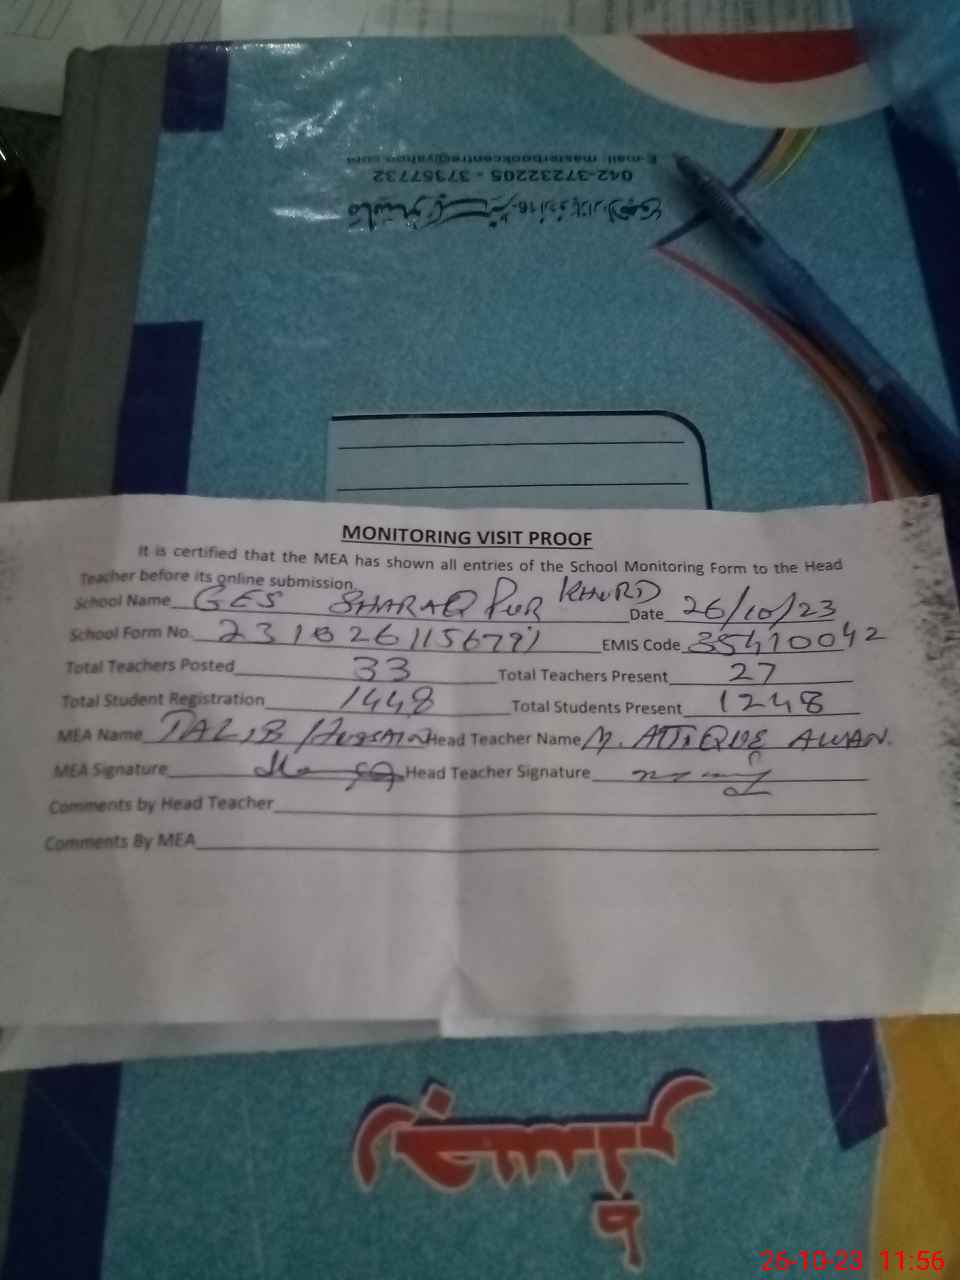 E-mail: masterbookcentre@yahoo.com
042-37232205 - 37357732
MONITORING VISIT PROOF
It is certified that the MEA has shown all entries of the School Monitoring Form to the Head
Teacher before its online submission.
School Name GES SHARAQ PUR KHURD Date 26/10/23
School Form No. EMIS Code 35410042
Total Teachers Posted 33 Total Teachers Present 27
Total Student Registration 1448 Total Students Present 1248
MEA Name TALIB Hussain Head Teacher Name M. ATTIQUE AWAN.
MEA Signature Head Teacher Signature
Comments by Head Teacher
Comments By MEA
26-10-23 11:56